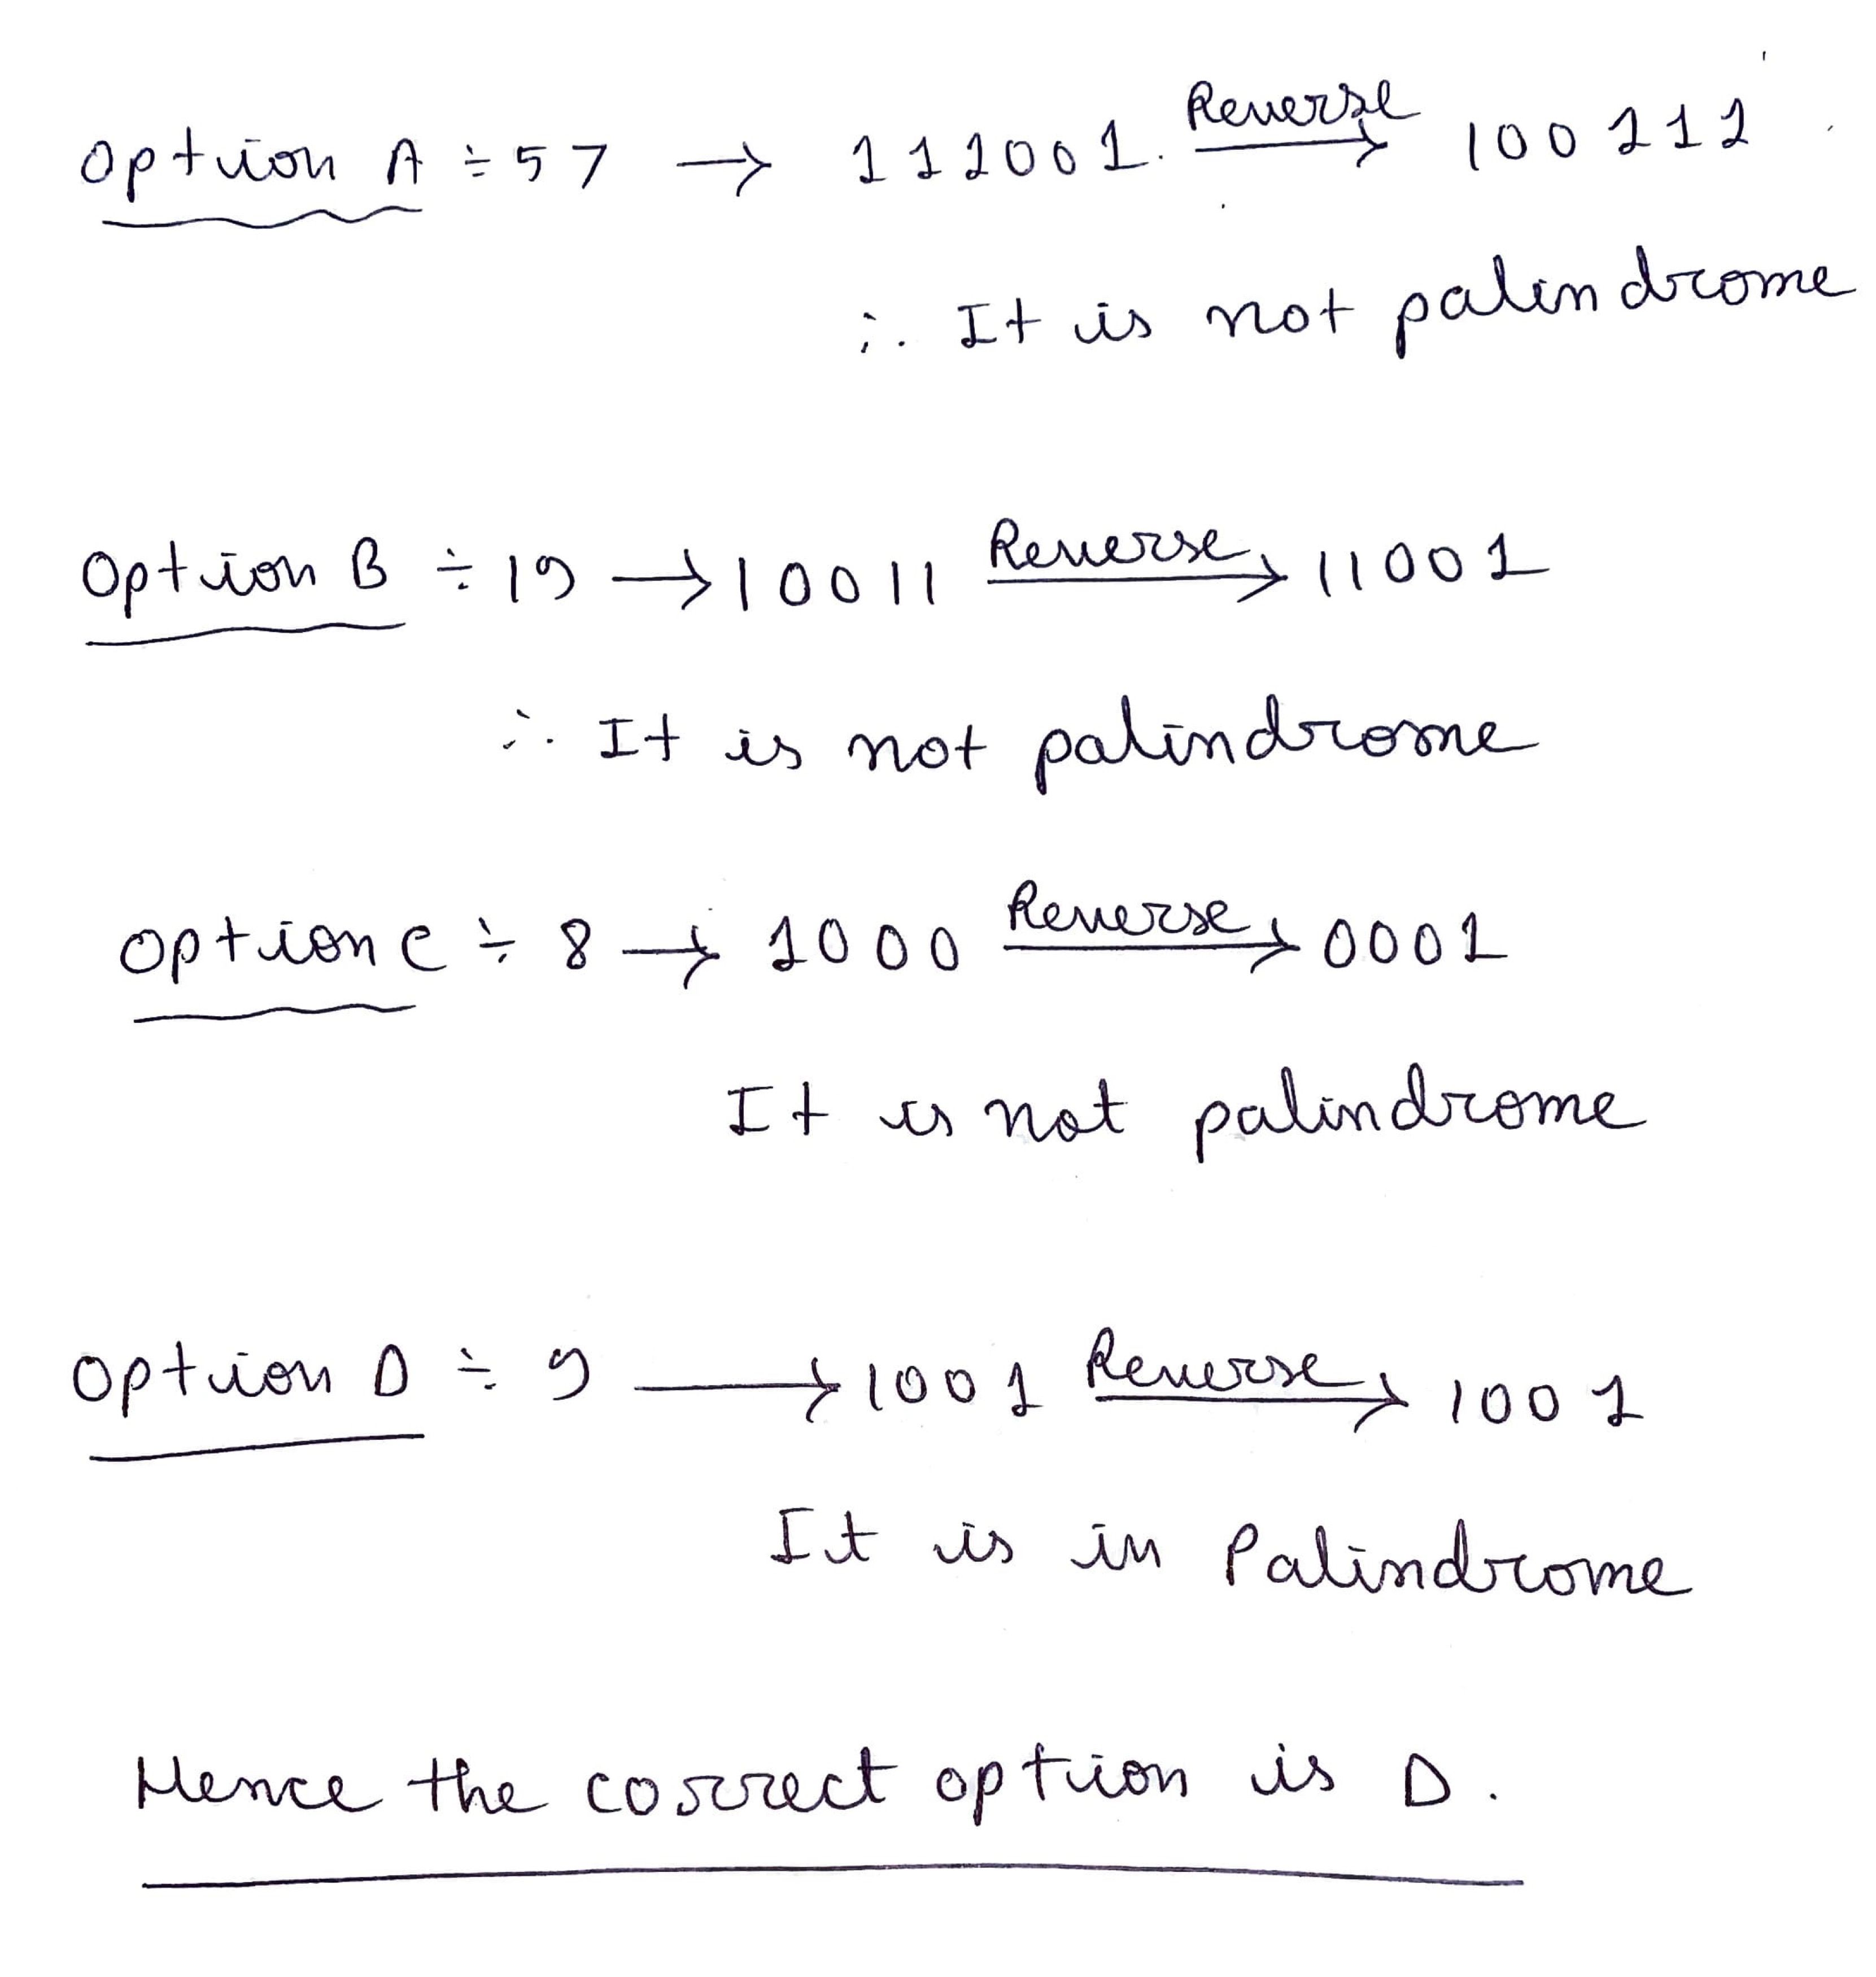 Option A ÷ 57 → 111001. Reverse → 100111
∴ It is not palindrome
Option B ÷ 19 → 10011 Reverse → 11001
∴ It is not palindrome
Option C ÷ 8 → 1000 Reverse → 0001
It is not palindrome
Option D ÷ 9 → 1001 Reverse → 1001
It is in Palindrome
Hence the correct option is D.